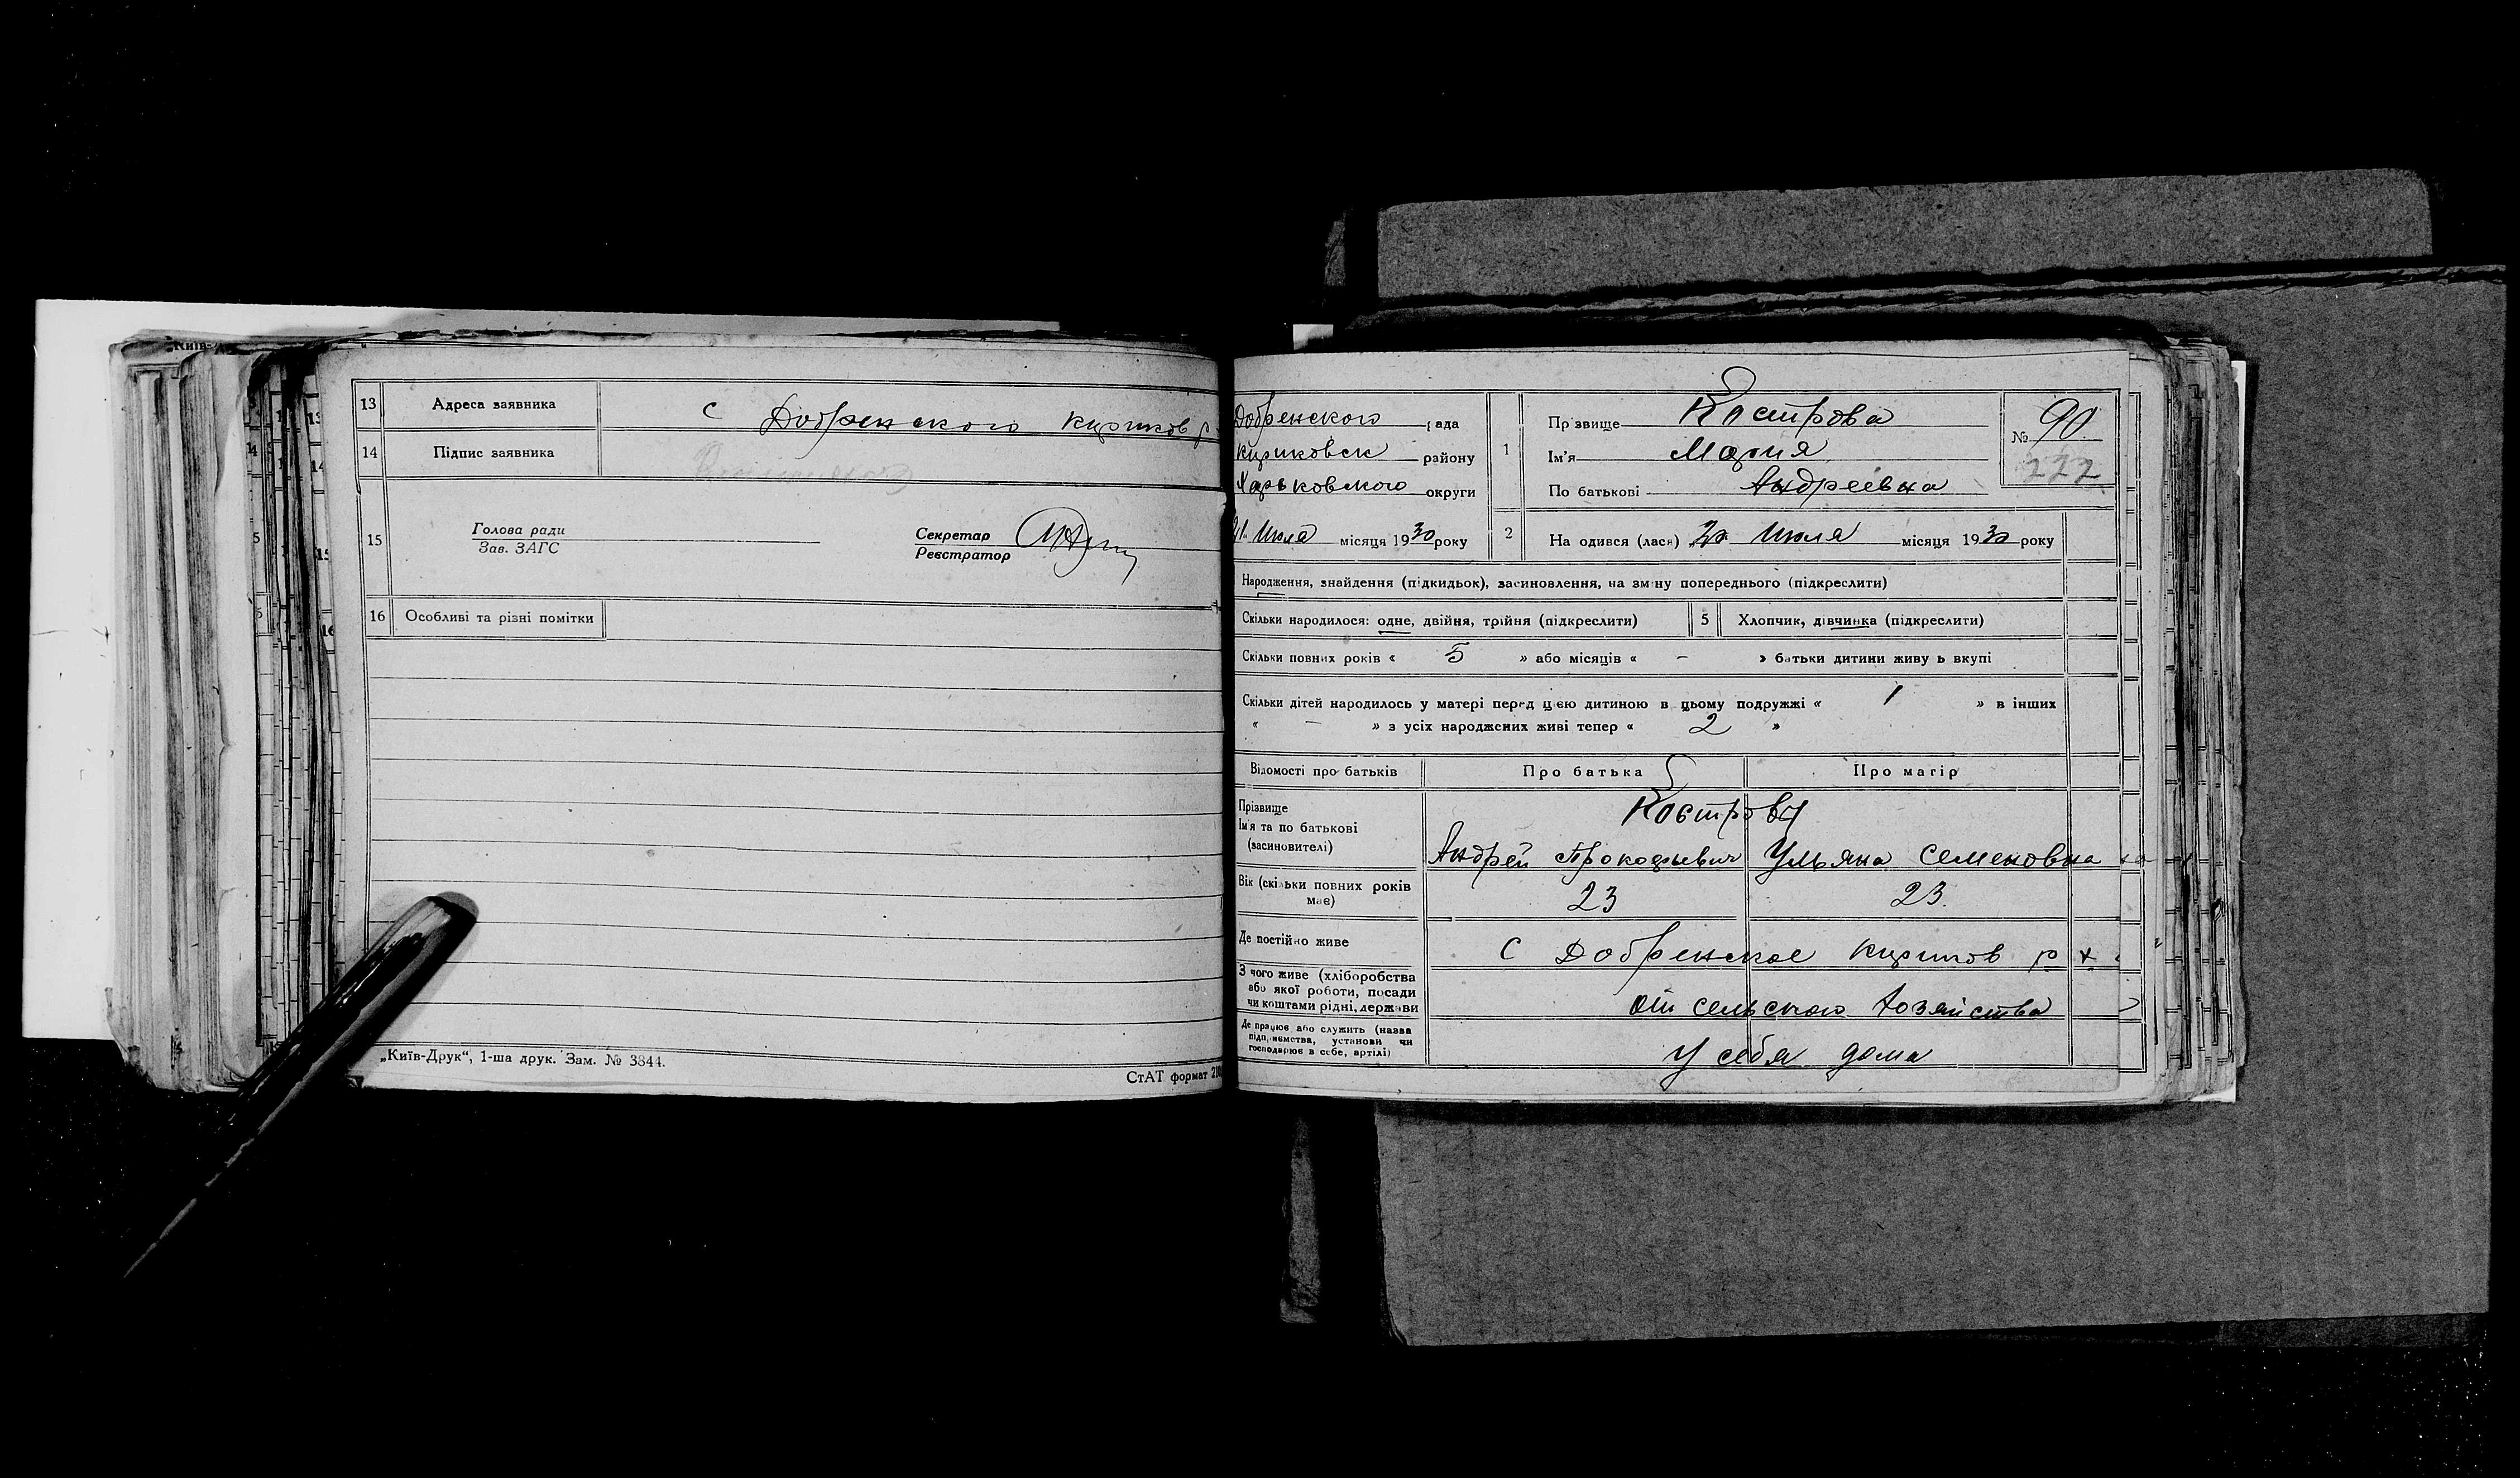 13 Адреса заявника с Добренского Кириков р
14 Підпис заявника
15 Голова ради
Зав. ЗАГС
Секретар
Реєстратор
16 Особливі та різні помітки
„Київ-Друк“, 1-ша друк. Зам. № 3844.
СтАТ формат
Добренского рада
Кириковск району
Харьковского округи
Июля місяця 1930 року
1 Прізвище Кострова
Ім'я Мария
По батькові Андреевна
№ 90
222
2 На одився (лася) 20 Июля місяця 1930 року
Народження, знайдення (підкидьок), засиновлення, на зміну попереднього (підкреслити)
Скільки народилося: одне, двійня, трійня (підкреслити) 5 Хлопчик, дівчинка (підкреслити)
Скільки повних років « 5 » або місяців « - » батьки дитини живу ь вкупі
Скільки дітей народилось у матері перед цією дитиною в цьому подружжі « 1 » в інших
« — » з усіх народжених живі тепер « 2 »
Відомості про батьків Про батька Про матір
Прізвище Костровы
Ім'я та по батькові
(засиновителі) Андрей Прокофьевич Ульяна Семеновна
Вік (скільки повних років
має) 23 23.
Де постійно живе С Добренское Кириков р х
З чого живе (хліборобства
або якої роботи, посади
чи коштами рідні, держави от сельского хозяйства
Де працює або служить (назва
підприємства, установи чи
господарює в себе, артілі) У себя дома